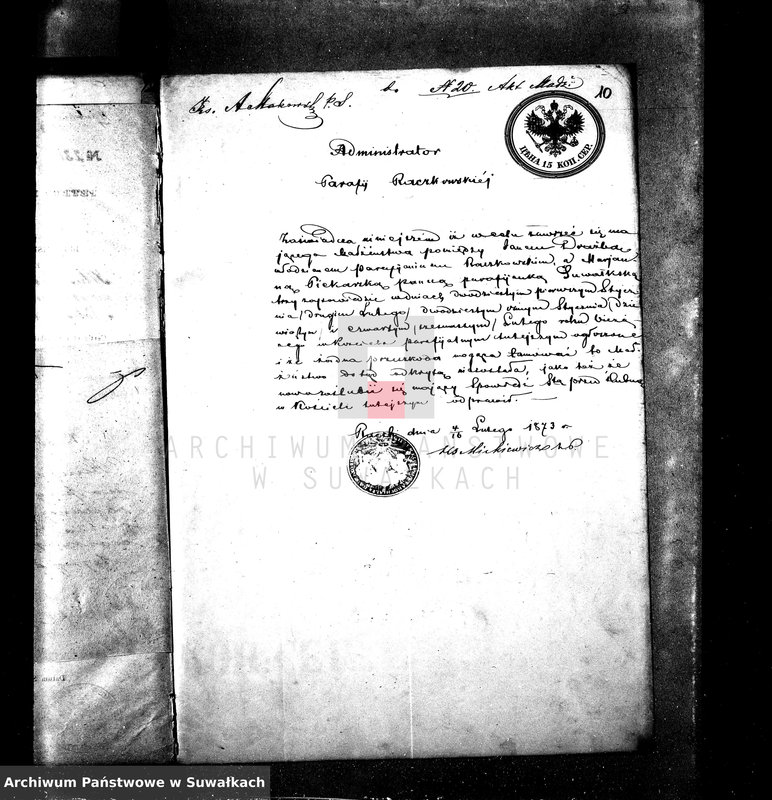 Ks. A. Makowski P.S. do N 20 Akt Małż. 10
ЦѢНА 15 КОП. СЕР.
Administrator
Parafij Raczkowskiéj
Zaświadcza niniejszém iż w celu zawrzeć się ma
jącego Małżeństwa pomiędzy Janem
Wdowcem parafijaninem Raczkowskim, a Marjan
ną Piekarską panną parafijanką Suwalską
trzy zapowiedzie w dniach dwudziestym pierwszym Stycz
nia / drugim Lutego / dwudziestym ósmym Stycznia / dzie
wiątym / i czwartym / szesnastym / Lutego roku bieżą
cego w Kościele parafijalnym tutejszym ogłoszone
i że żadna przeszkoda mogąca tamować to Mał
żeństwo dotąd odkrytą niezostała, jako też że
nowozaślubić się mający Spowiedź Stą przed Ślubną
w Kościele tutejszym odprawił. —
Raczki dnia 4/16 Lutego 1873 r.
Ks Mickiewicz
ARCHIWUM PAŃSTWOWE
W SUWAŁKACH
Archiwum Państwowe w Suwałkach